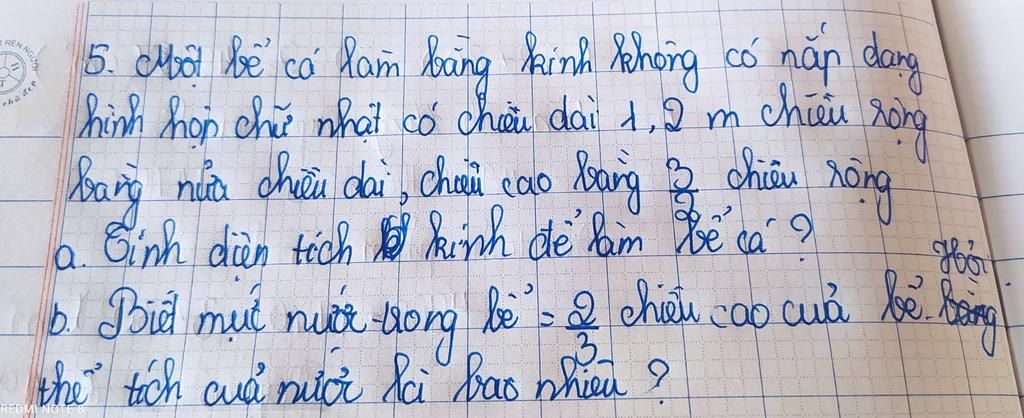 5. Một bể cá làm bằng kính không có nắp dạng
hình hộp chữ nhật có chiều dài 1,2 m chiều rộng
bằng nửa chiều dài, chiều cao bằng 3/2 chiều rộng
a. Tính diện tích kính để làm bể cá?
Hỏi
b. Biết mực nước trong bể = 2/3 chiều cao của bể.
thể tích của nước là bao nhiêu?
REDMI NOTE 8